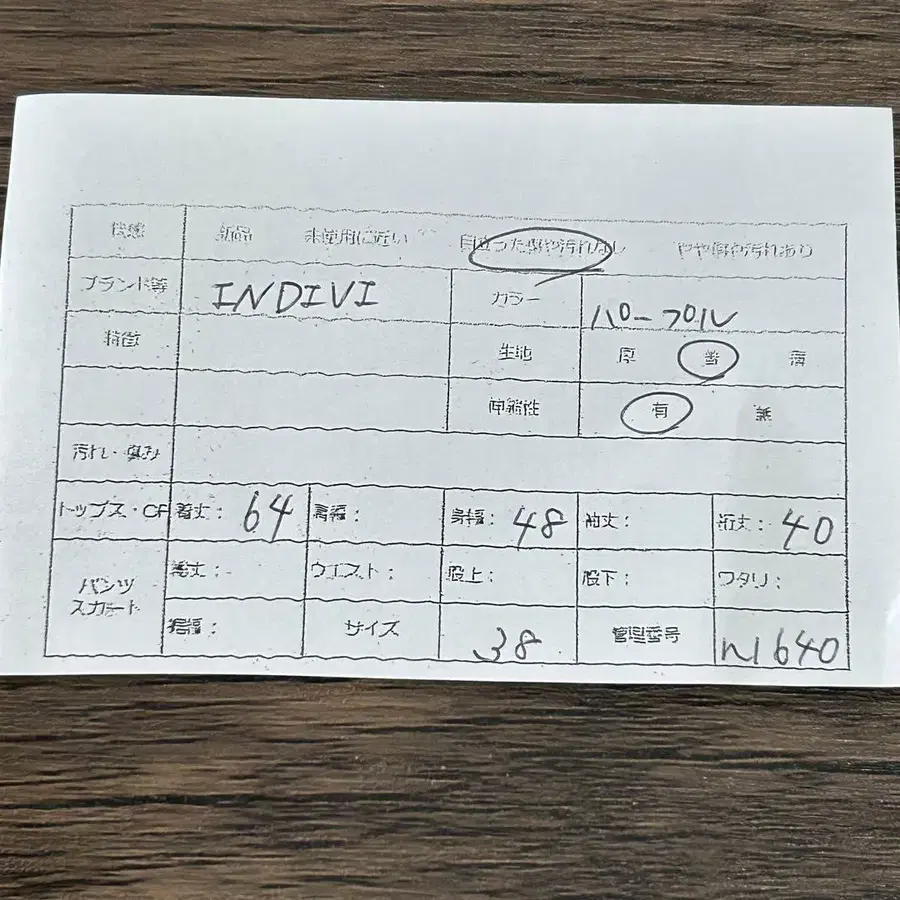 状態 新品 未使用に近い 目立った傷や汚れなし やや傷や汚れあり
ブランド等 INDIVI カラー パープル
特徴 生地 厚 普 薄
伸縮性 有 無
汚れ・傷み
トップス・OP 着丈: 64 肩幅: 身幅: 48 袖丈: 裄丈: 40
パンツ スカート 総丈: ウエスト: 股上: 股下: ワタリ:
裾幅: サイズ 38 管理番号 n1640